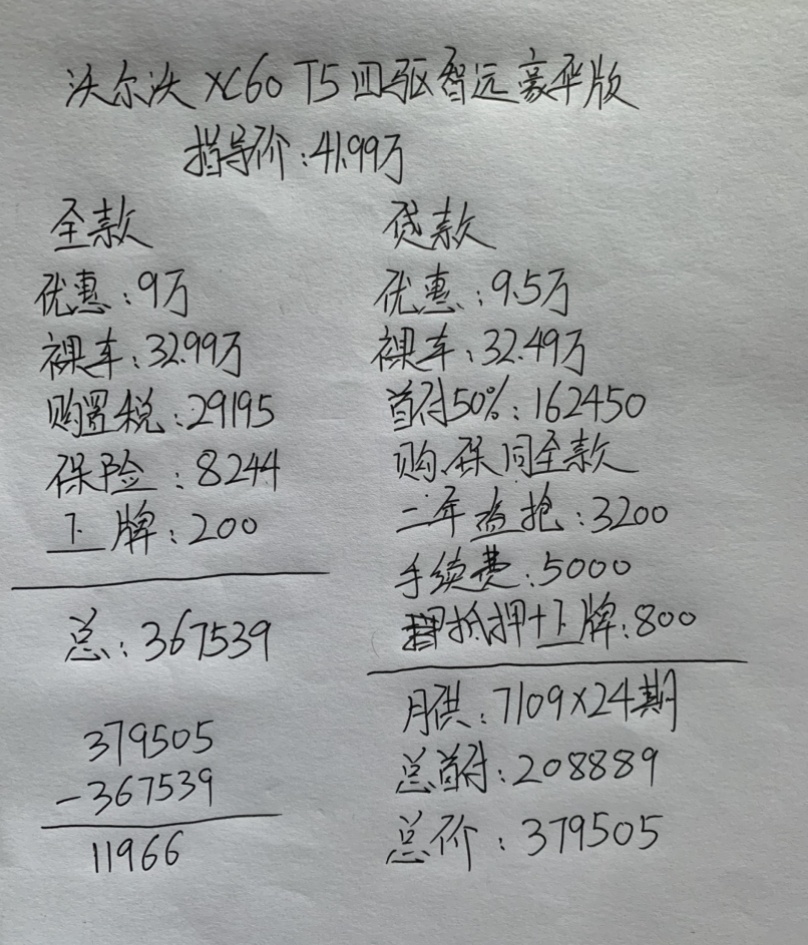 沃尔沃 XC60 T5 四驱智远豪华版
指导价:41.99万
全款
优惠:9万
裸车:32.99万
购置税:29195
保险:8244
上牌:200
总:367539
379505
-367539
11966
贷款
优惠:9.5万
裸车:32.49万
首付50%:162450
购、保同全款
二年盗抢:3200
手续费:5000
抵押+上牌:800
月供:7109×24期
总首付:208889
总价:379505